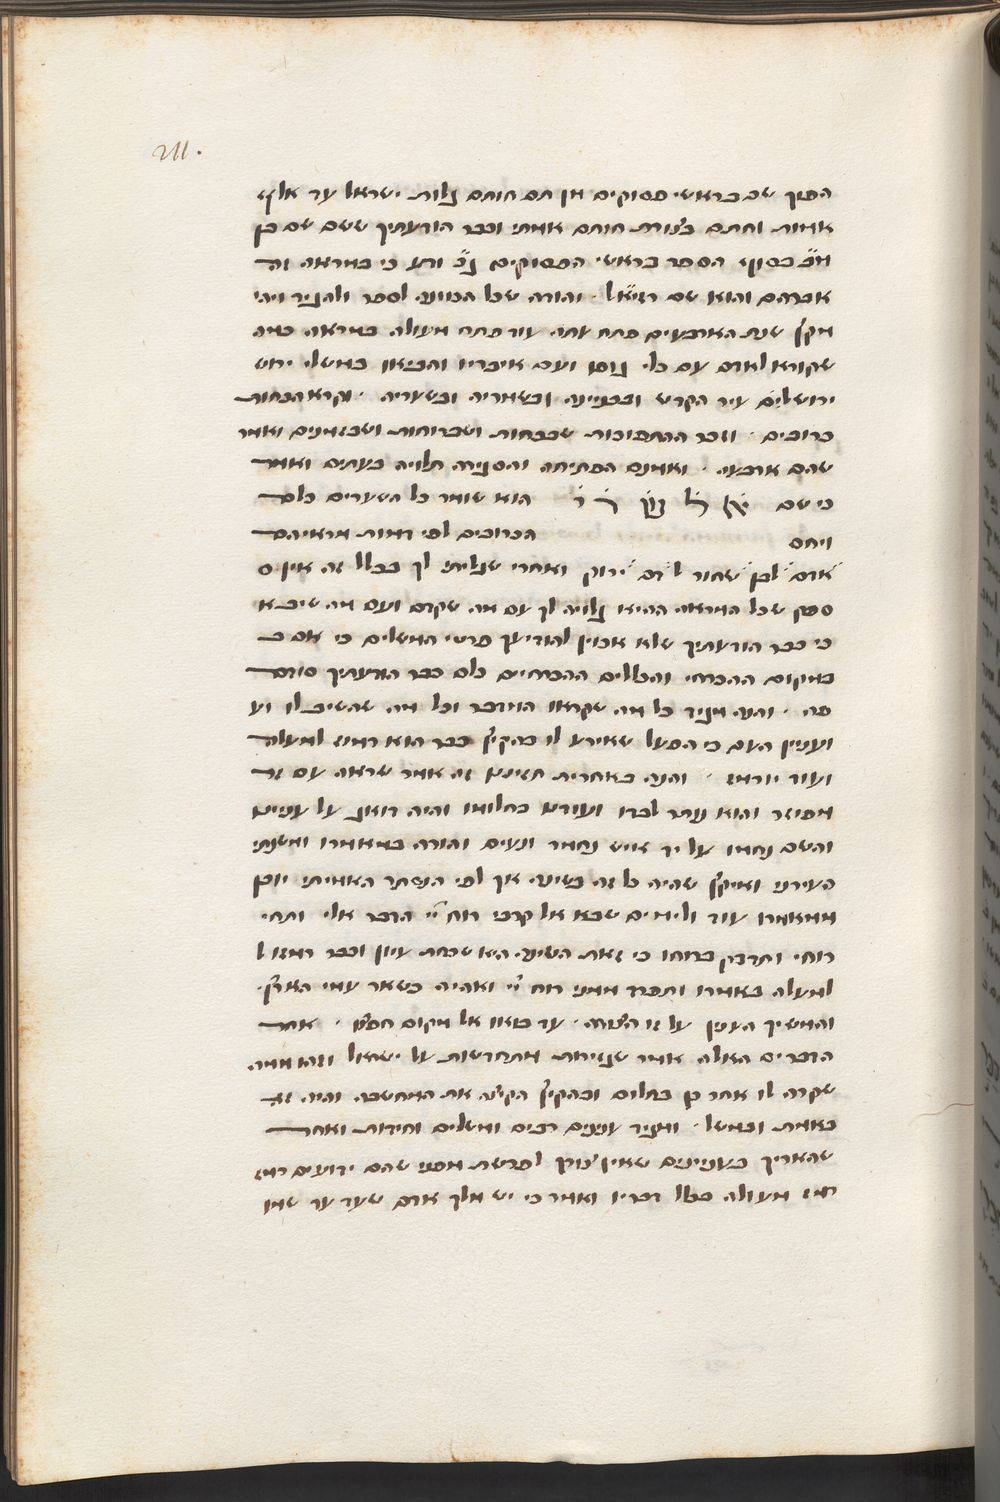 הסוד שם בראשי פסוקים הן הם חותם גלות ישראל עד אלף
אמות וחתם בצורת חותם אמתי וכבר הודעתיך ששם שם בן
בסוף הספר בראשי הפסוקים ודע כי במראה זה
אברהם והוא שם רזיאל . והורה שכל הכוונה לספר ולהגיד ויהי
מקץ שנת הארבעים פתח עתה עוד פתח מעולה במראה כמה
שקורא לאדם עם כלי גופו ועם איבריו והביאו במשלי יחש
ירושלים עיר הקדש ובבניינה ובשומריה ובשעריה . וקרא הכחות
כרובים . וזכר ההרכבות שבכחות ושברוחות ושבזמנים ואמר
שהם ארבעה . ואמנם הפתיחה והסגירה תלויה בעתים ואמר
כי שם הוא שומר כל השערים כלם
ויחס הכרובים לפי דמות מראיהם
אדם לבן שחור ירוק ואחרי שגליתי לך בכלל זה אין ס
ספק שכל המראה ההיא גלויה לך עם מה שקדם ועם מה שיבא
כי כבר הודעתיך שלא אכוין להודיעך פרטי המשלים כי אם ב
במקום ההכרחי והכללים ההכרחיים כלם כבר הודעתיך סודם
פה . והנה הגיד כל מה שקראו הוידבר וכל מה שהשיב לו וע
ועניין העם כי הפעל שאירע לו בהקיץ כבר הוא רמוז למעלה
ועוד יורמז . והנה באחרית חזיונו זה אמר שראה עם זה
מסוגר והוא נותר לבדו ועודנו בחלומו והיה דואג על עניינו
והשם נחמו על יד איש נחמד ונעים והורה במאמרו ומשנתי
העירני ואיקץ שהיה כל זה בשינה אך לפי הנסתר האמיתי יובן
ממאמרו עוד ולימים שבא אל קרבי רוח יי הדבר אלי ותחי
רוחי ותדבק ברוחו כי זאת השינה היא שכחת עיון וכבר רמזו ל
למעלה באמרו ותפרד ממני רוח יי ואהיה כשאר עמי הארץ .
והמשיך העניין על זו הצורה . עד בואו אל מקום חפצו . אחר
הדברים האלה אמר שגזירות מתחדשות על ישראל ונבא ממה
שקרה לו אחר כן בחלום ובהקיץ הקיצה את המחשבה והיה זה
באמת ובמשל . והגיד עניינים רבים ומשלים וחידות ואחר
שהאריך בעניינים שאין צורך לפרשם מפני שהם ידועים רמז
רמז מעולה בכל דבריו ואמר כי יש מלך אדם שעד עד שמו